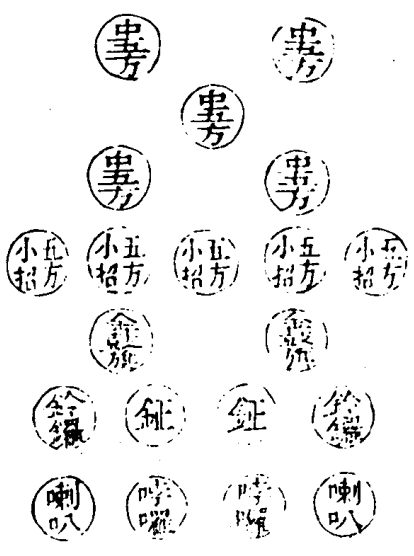 中五方 中五方
中五方
中五方 中五方
五方小招 五方小招 五方小招 五方小招 五方小招
金鼓旗 金鼓旗
鑼 鉦 鉦 鑼
喇叭 哱囉 哱囉 喇叭